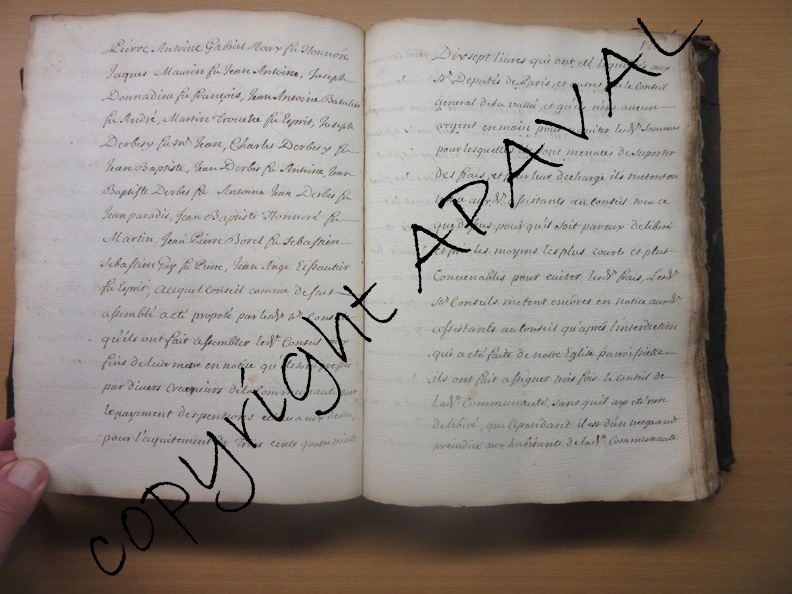 Pierre Antoine Gabriel Roux fu Honnoré
Jaques Maurin fu Jean Antoine, Joseph
Donnadieu fu françois, Jean Antoine
fu André, Martin Trouche fu Esprit, Joseph
Derbesy fu Jean, Charles Derbesy fu
Jean Baptiste, Jean Derbes fu Antoine, Jean
Baptiste Derbes fu Antoine Jean Derbes fu
Jean paradis, Jean Baptiste Honnoré fu
Martin, Jean Pierre Borel fu Sebastien
Sebastien Goy fu Pierre, Jean Ange Eissautier
fu Esprit, auquel Conseil comme dessus
assemblé a été proposé par lesds
qu'ils ont fait assembler led Conseil
fins de leur metre en notice qu'ils sont
par divers Creanciers de la Communauté
le payement des pensions
pour l'aquitement de Trois cents quatre vints
Dix sept livres qui ont été aux
Srs Deputés de Paris, et autres le Conseil
general de la vallée, et qu'ils n'ont aucun
argent en main pour lesds sommes
pour lesquelles ils sont menacés de suporter
des frais, et pour leur decharge ils metent en
aux ds assistants au conseil tout ce
que dessus pour qu'il soit par eux deliberé
les moyens les plus courts et plus
Convenables pour eviter lesds frais, Lesds
Srs Consuls metent encores en notice auxds
assistants au Conseil qu'après l'interdiction
qui a été faite de notre Eglise paroissielle
ils ont fait assigner trois fois le Conseil de
lad Communauté, sans qu'il aye été rien
deliberé, que cependant il est d'un tres grand
prejudice aux habitants de lad Communauté
copyright APAVAL